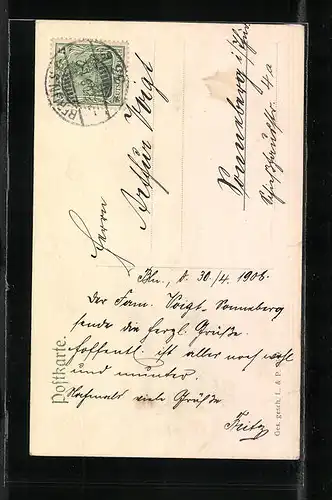 Herrn
Arthur Voigt
Sonneberg i/Thür
Schießhausstr. 4a
Bln., d. 30./4. 1906.
Der Fam. Voigt-Sonneberg
sende die herzl. Grüße.
Hoffentl. ist alles noch wohl
und munter.
Nochmals viele Grüße
Fritz
Postkarte.
Ges. gesch. L. & P.